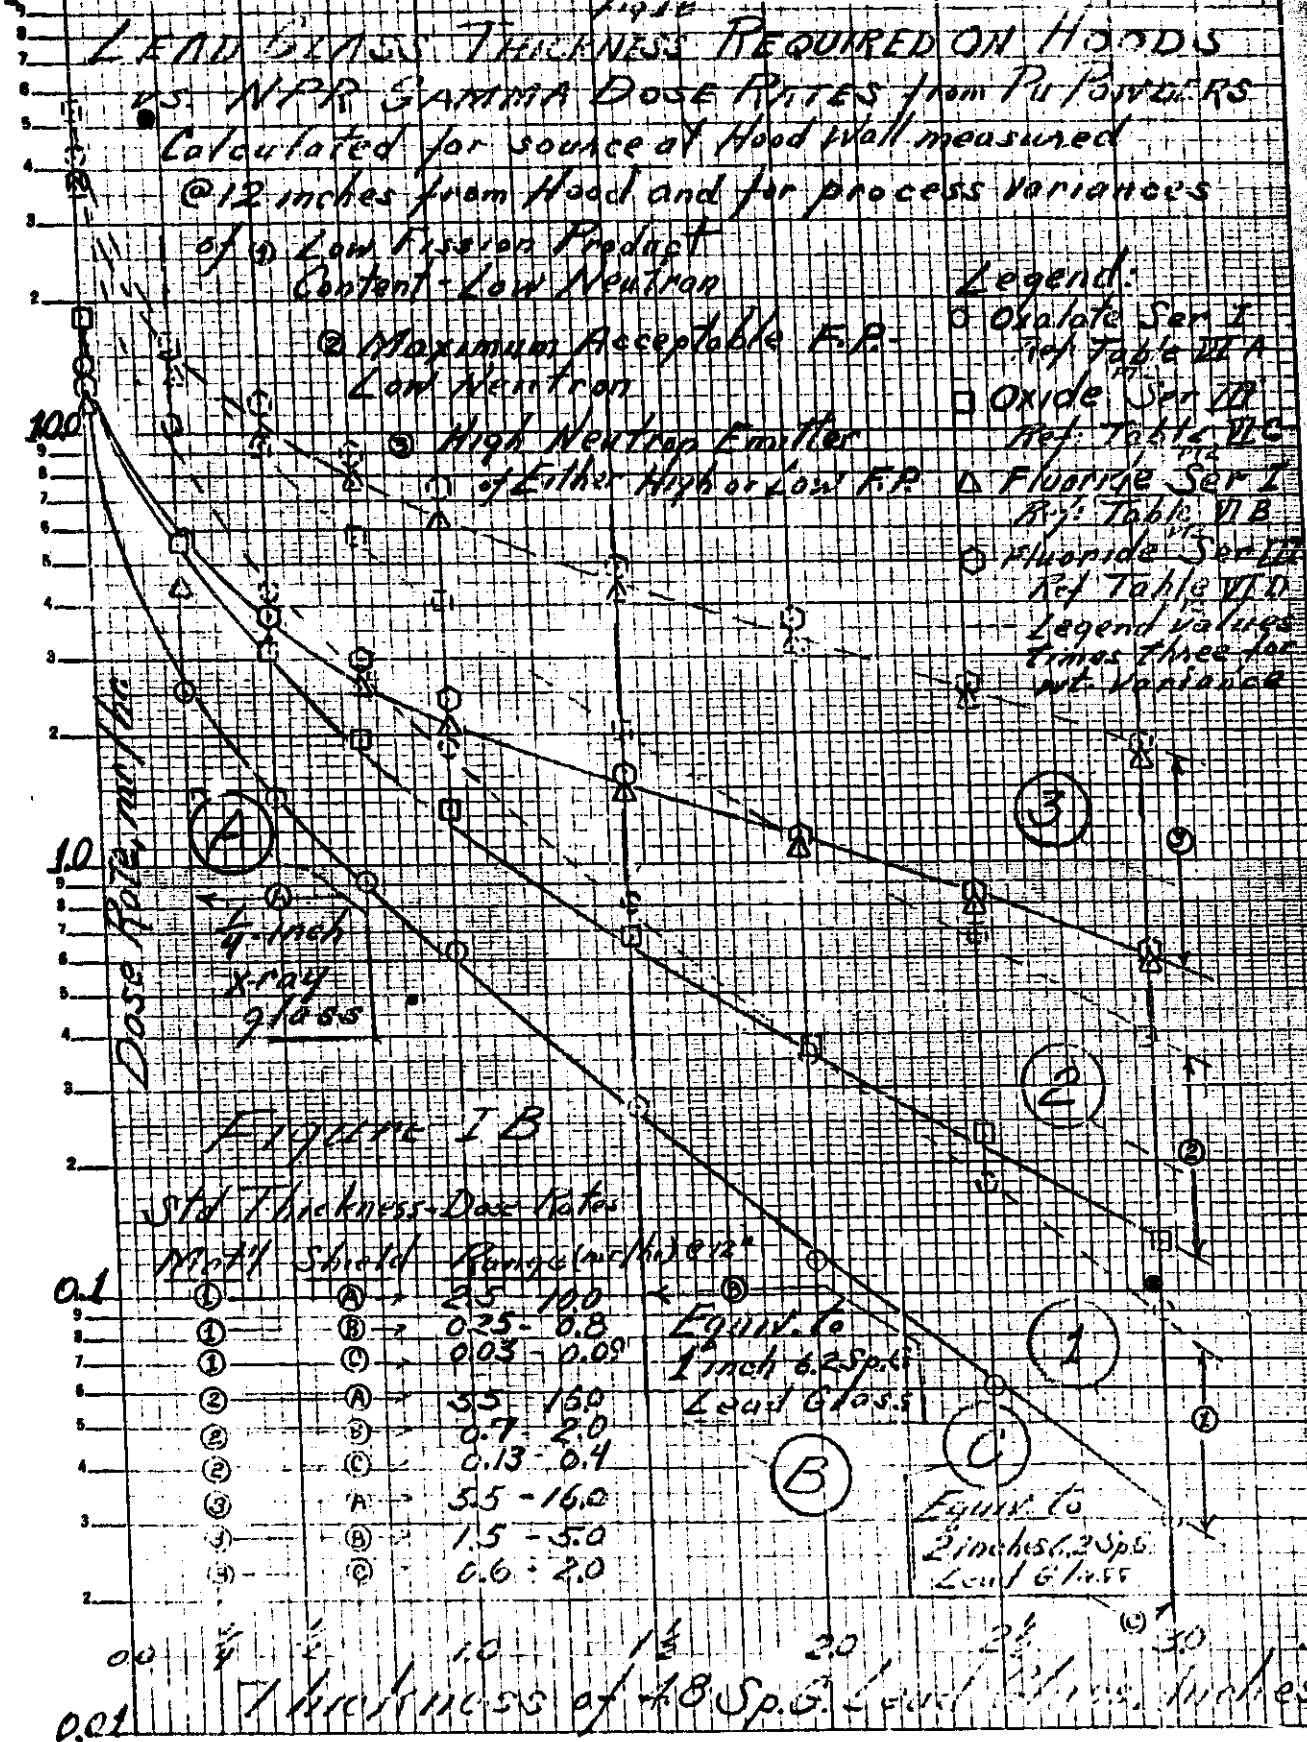 Figure
LEAD GLASS THICKNESS REQUIRED ON HOODS
vs. NPR GAMMA DOSE RATES from Pu POWDERS
Calculated for source at Hood Wall measured
@12 inches from Hood and for process variances
of ① Low Fission Product
Content - Low Neutron
② Maximum Acceptable F.P. -
Low Neutron
③ High Neutron Emitter
of Either High or Low F.P.
Legend:
Oxalate Ser I
Ref Table VI A
Oxide Ser III
Ref. Table VI C
Fluoride Ser I
Ref: Table VI B
Fluoride Ser III
Ref Table VI D
Legend Values
times three for
wt. variance
Dose Rate, mr/hr
9
8
7
6
5
4
3
2
10.0
9
8
7
6
5
4
3
2
1.0
9
8
7
6
5
4
3
2
0.1
9
8
7
6
5
4
3
2
0.01
A
Ⓐ
1/4-inch
x-ray
glass
3
③
2
②
1
①
Figure I B
Std Thickness-Dose Rates
Mat'l Shield Range (mr/hr) @ 12"
① Ⓐ 2.5 - 10.0
① Ⓑ 0.25 - 0.8
① Ⓒ 0.03 - 0.09
② Ⓐ 5.5 - 16.0
② Ⓑ 0.7 - 2.0
② Ⓒ 0.13 - 0.4
③ A 5.5 - 16.0
③ Ⓑ 1.5 - 5.0
③ Ⓒ 0.6 - 2.0
Ⓑ
Equiv. to
1 inch 6.2 Sp.G
Lead Glass
B
C
Equiv. to
2 inches 6.2 Sp.G
Lead Glass
Ⓒ
0.0 1/4 1/2 1.0 1 1/2 2.0 2 1/2 3.0
Thickness of 4.8 Sp.G. Lead Glass, Inches